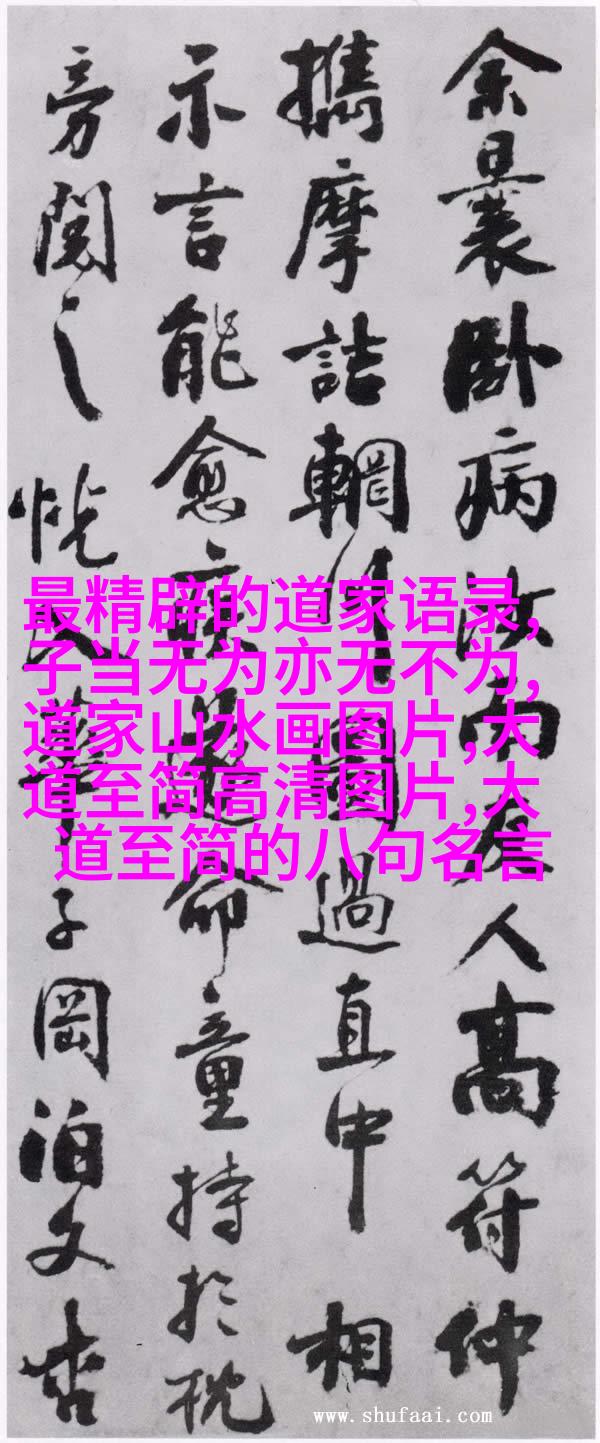 余曩卧病汝南友人高符仲
攜摩詰輞川圖過直中相
示言能愈疾遂命童持於枕
旁閱之恍入華子岡泊文杏
最精辟的道家语录,
子当无为亦无不为,
道家山水画图片,大
道至简高清图片,大
道至简的八句名言
www.shufaai.com